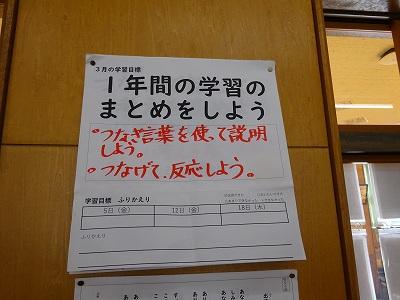 ３月の学習目標
１年間の学習の
まとめをしよう
・つなぎ言葉を使って説明
しよう。
・つなげて、反応しよう。
学習目標 ふりかえり
5日（金） 12日（金） 18日（木）
ふりかえり